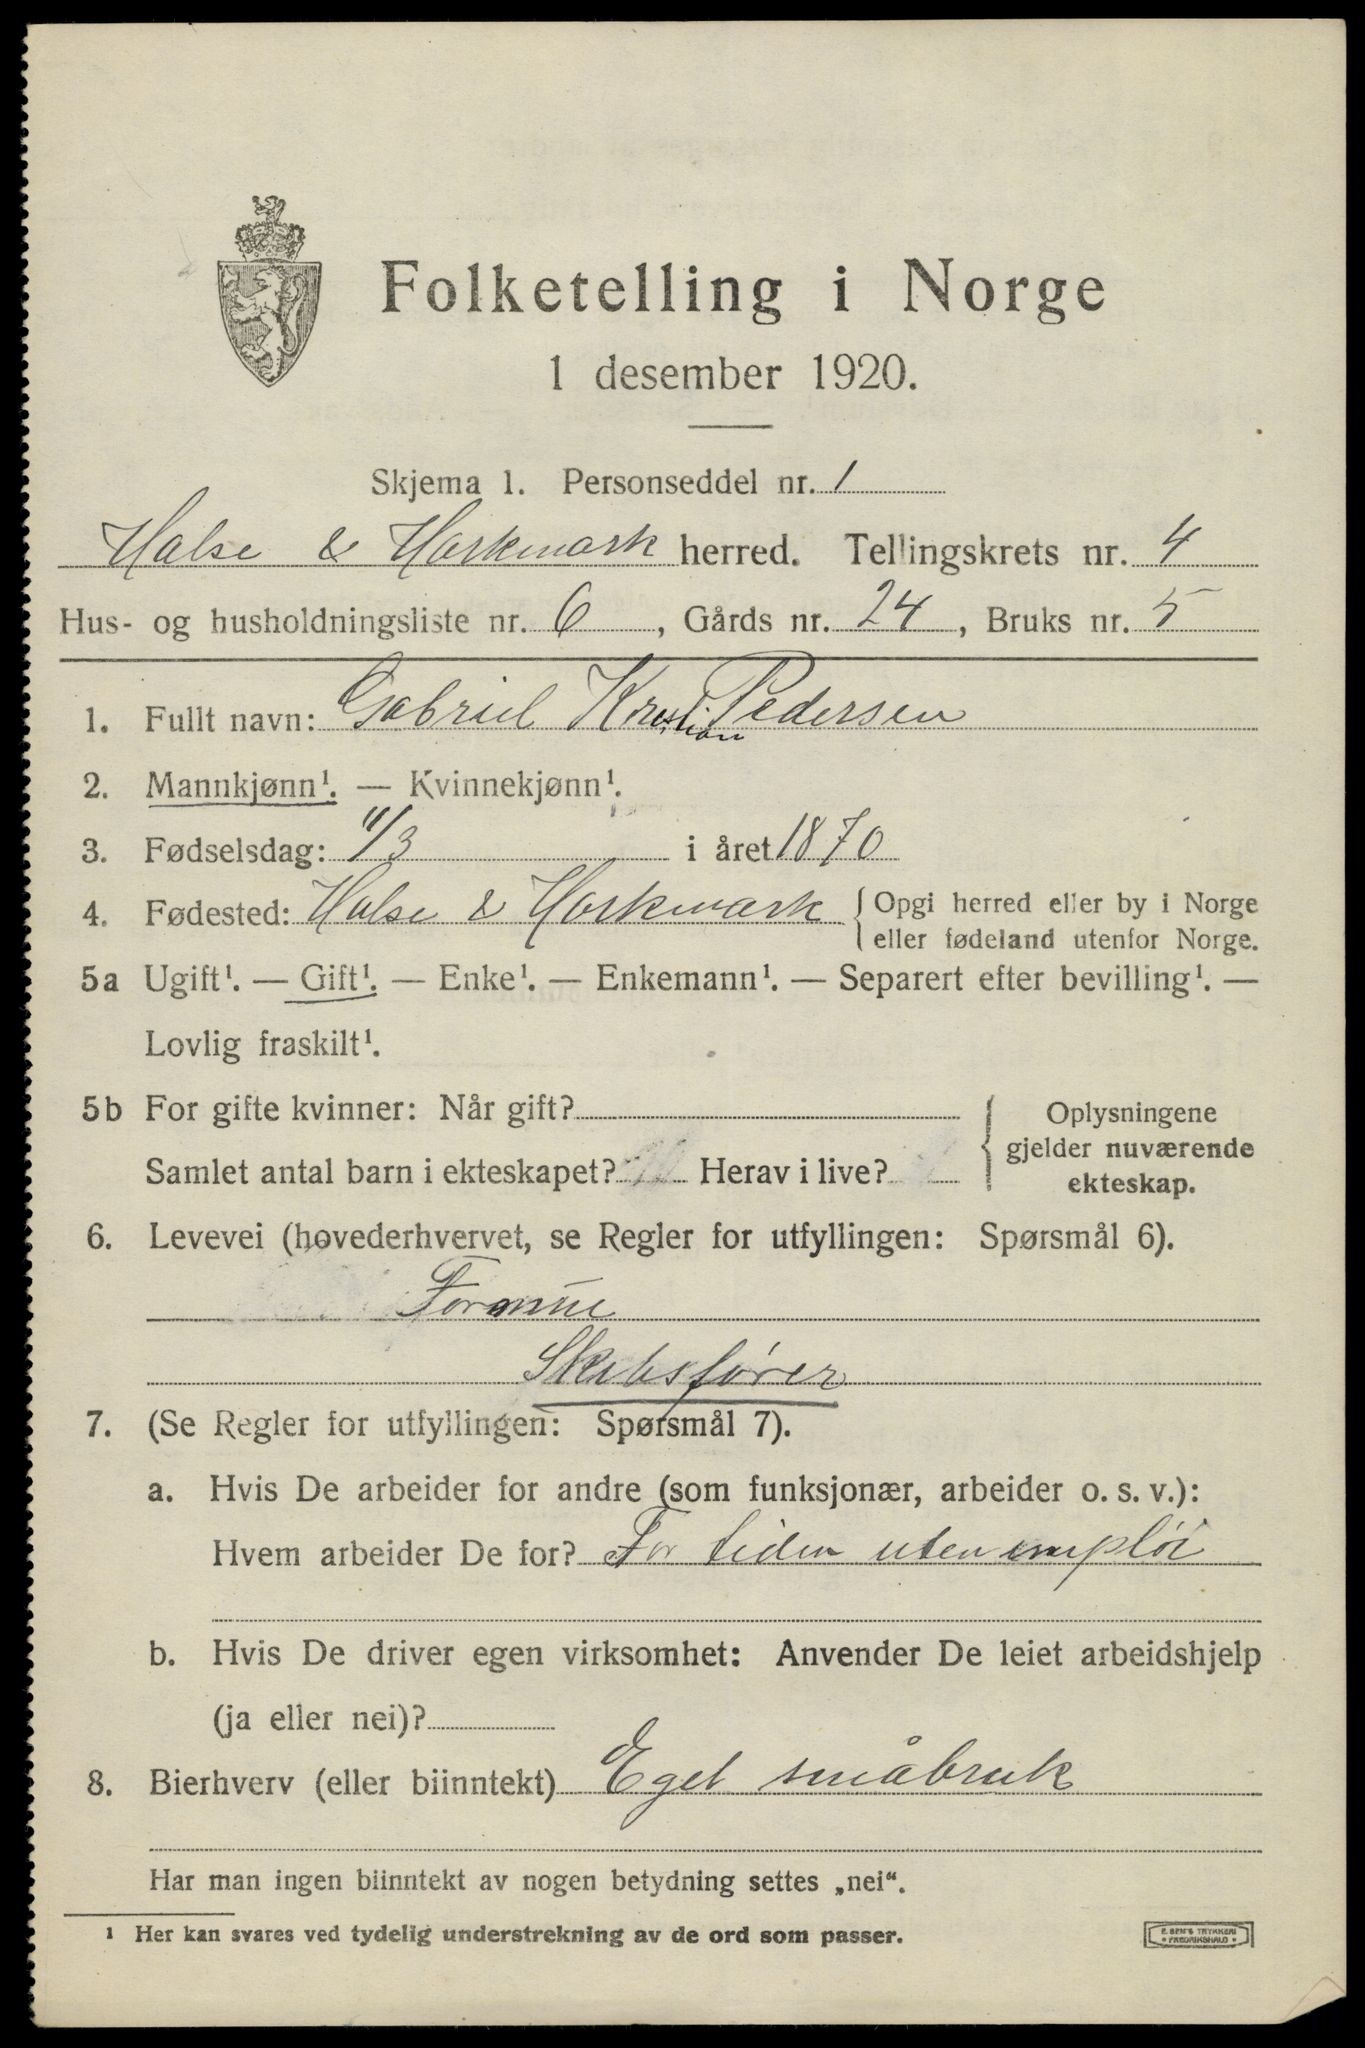 Folketelling i Norge
1 desember 1920.
Skjema 1. Personseddel nr. 1
Halse & Harkmark herred. Tellingskrets nr. 4
Hus- og husholdningsliste nr. 6, Gårds nr. 24, Bruks nr. 5
1. Fullt navn: Gabriel Kristian Pedersen
2. Mannkjønn¹. — Kvinnekjønn¹.
3. Fødselsdag: 11/3 i året 1870
4. Fødested: Halse & Harkmark { Opgi herred eller by i Norge
eller fødeland utenfor Norge.
5a Ugift¹. — Gift¹. — Enke¹. — Enkemann¹. — Separert efter bevilling¹. —
Lovlig fraskilt¹.
5b For gifte kvinner: Når gift?
Samlet antal barn i ekteskapet? Herav i live?
Oplysningene
gjelder nuværende
ekteskap.
6. Levevei (hovederhvervet, se Regler for utfyllingen: Spørsmål 6).
Formue
Skibsfører
7. (Se Regler for utfyllingen: Spørsmål 7).
a. Hvis De arbeider for andre (som funksjonær, arbeider o. s. v.):
Hvem arbeider De for? For tiden uten emplöi
b. Hvis De driver egen virksomhet: Anvender De leiet arbeidshjelp
(ja eller nei)?
8. Bierhverv (eller biinntekt) Eget småbruk
Har man ingen biinntekt av nogen betydning settes „nei“.
¹ Her kan svares ved tydelig understrekning av de ord som passer.
E. SEM'S TRYKKERI
* FREDRIKSHALD *